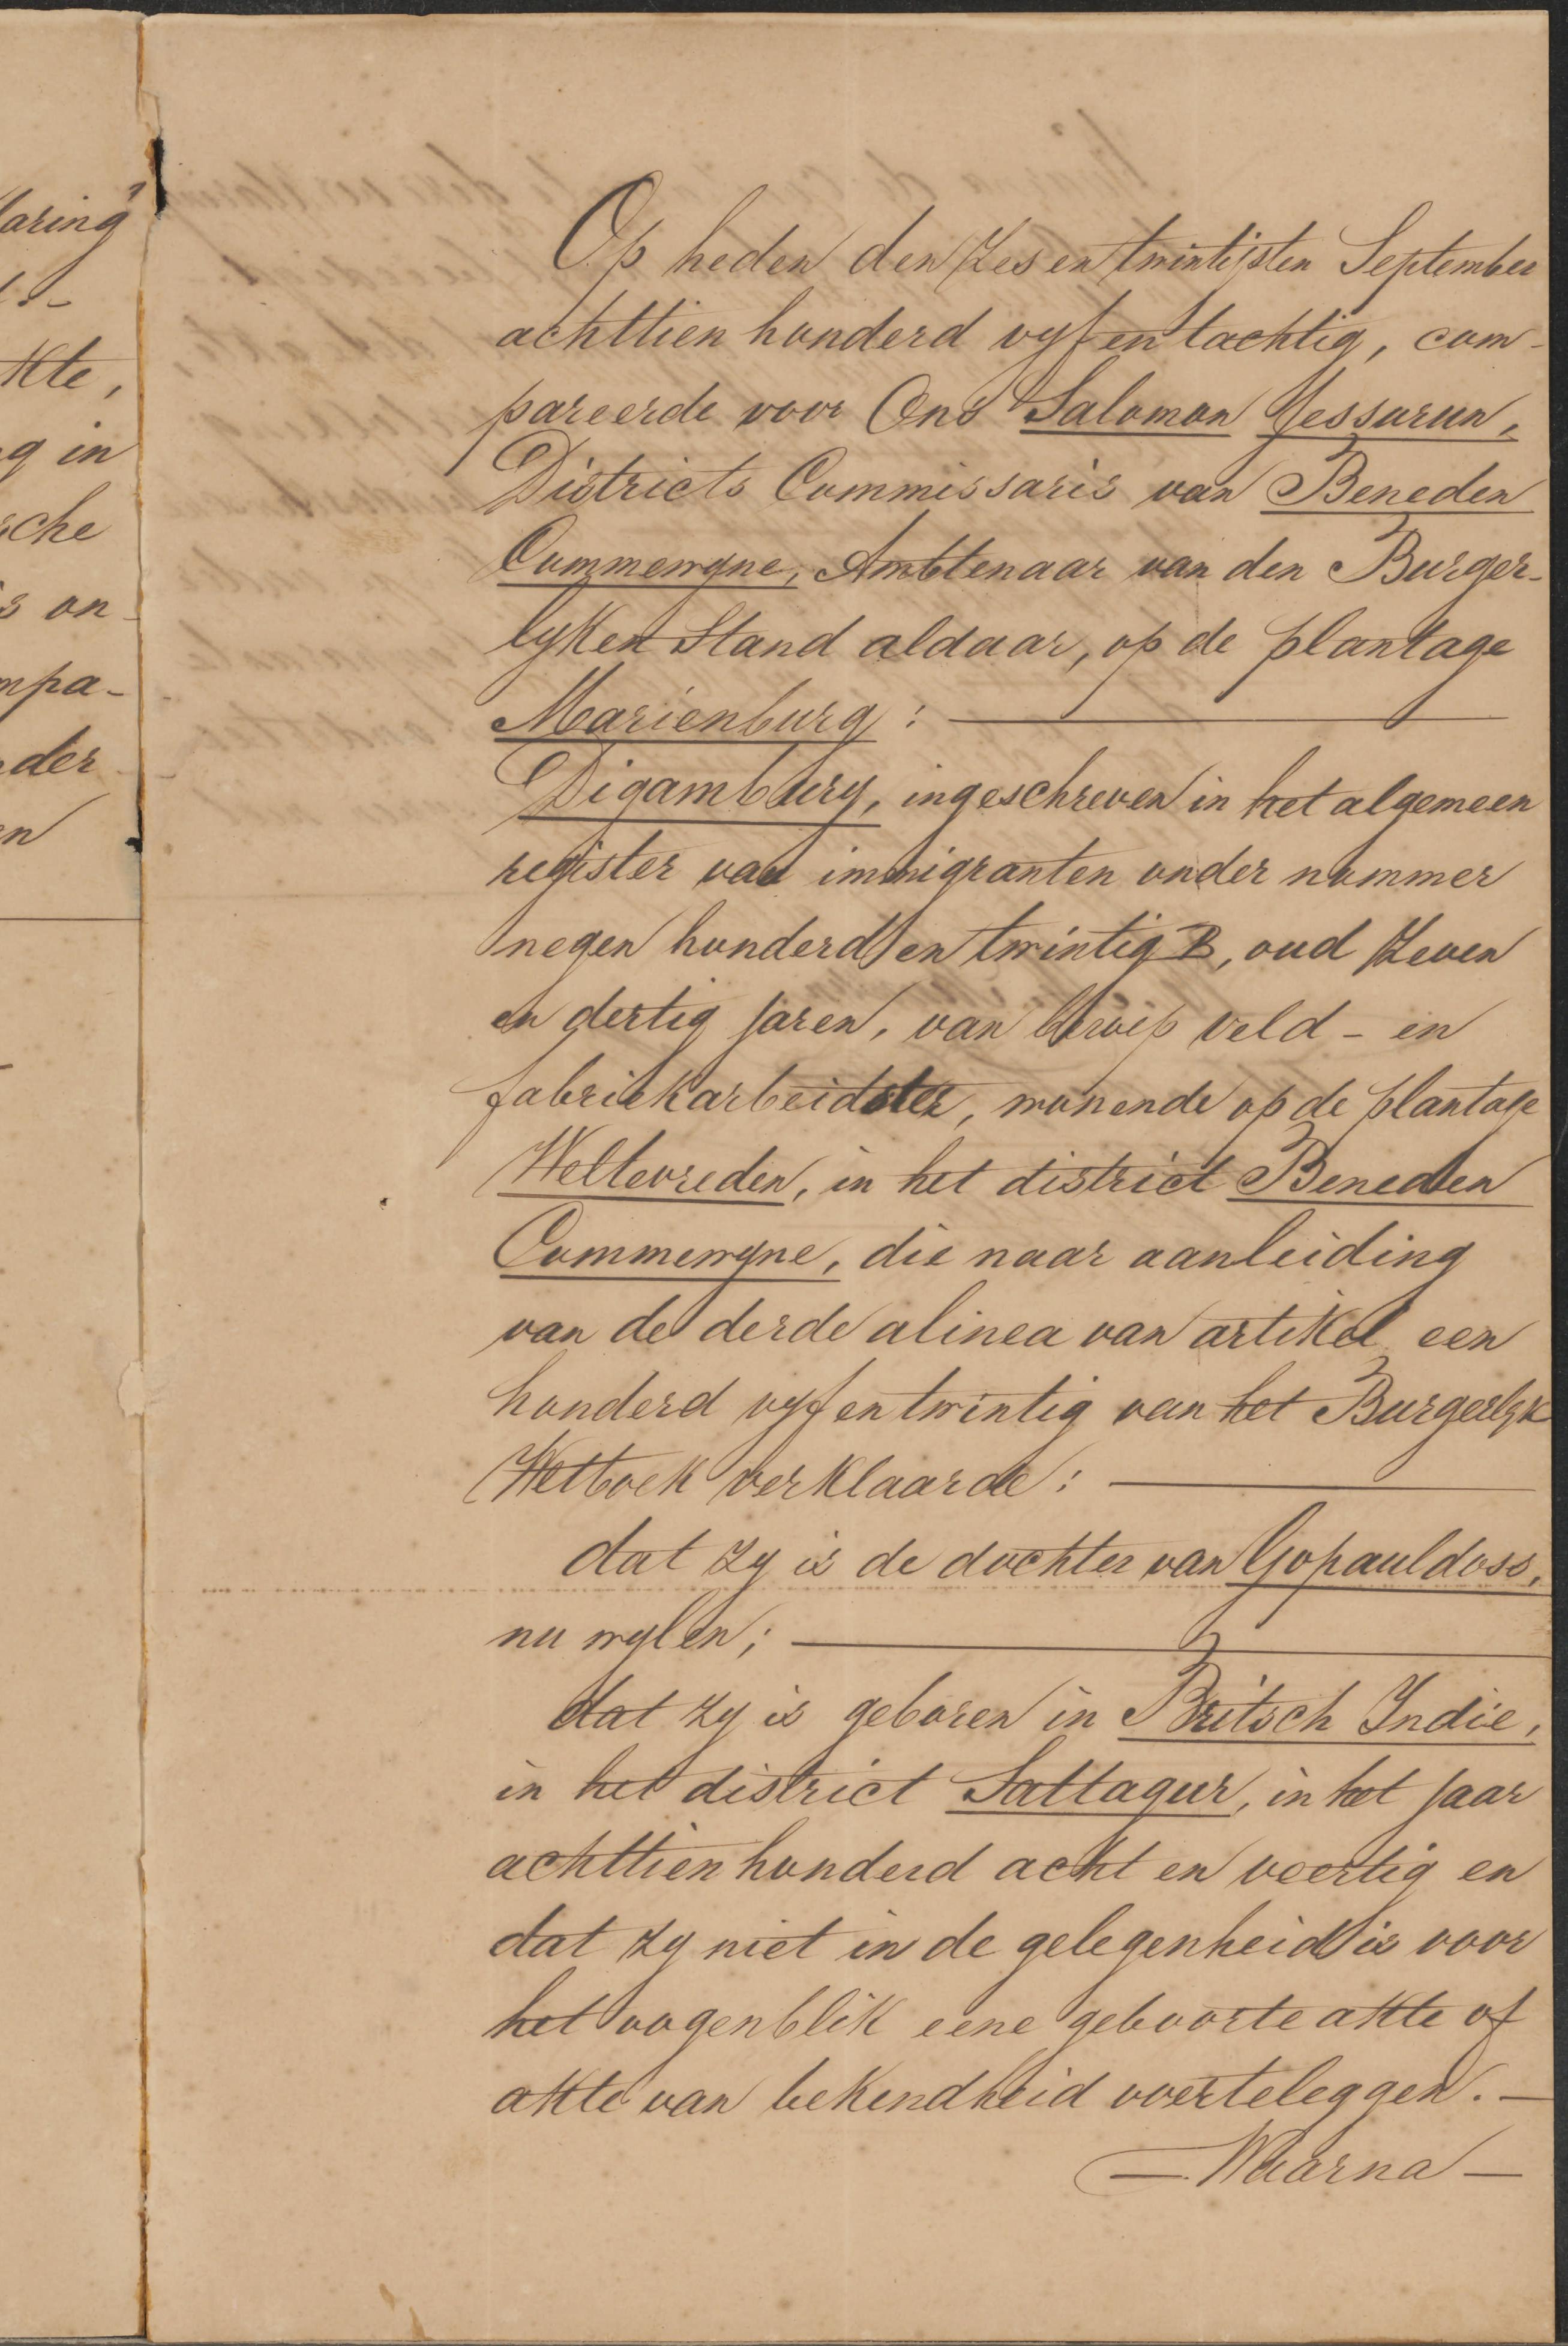 laring
kte,
g in
sche
s on
mpa-
der
en
Op heden den zes en twintigsten September
achttien honderd vyf en tachtig, com-
pareerde voor Ons Salomon Jessurun,
Districts Commissaris van Beneden
Commewyne, Ambtenaar van den Burger-
lyken Stand aldaar, op de plantage
Mariënburg:
Digambury, ingeschreven in het algemeen
register van immigranten onder nommer
negen honderd en twintig B, oud zeven
en dertig jaren, van beroep veld- en
fabriekarbeidster, wonende op de plantage
Weltevreden, in het district Beneden
Commewyne, die naar aanleiding
van de derde alinea van artikel een
honderd vyf en twintig van het Burgerlyk
Wetboek verklaarde:
dat zy is de dochter van Gopauldoss,
nu wylen;
dat zy is geboren in Britsch Indië,
in het district Sattagur, in het jaar
achttien honderd acht en veertig en
dat zy niet in de gelegenheid is voor
het oogenblik eene geboorte akte of
akte van bekendheid voorteleggen. —
— Waarna —